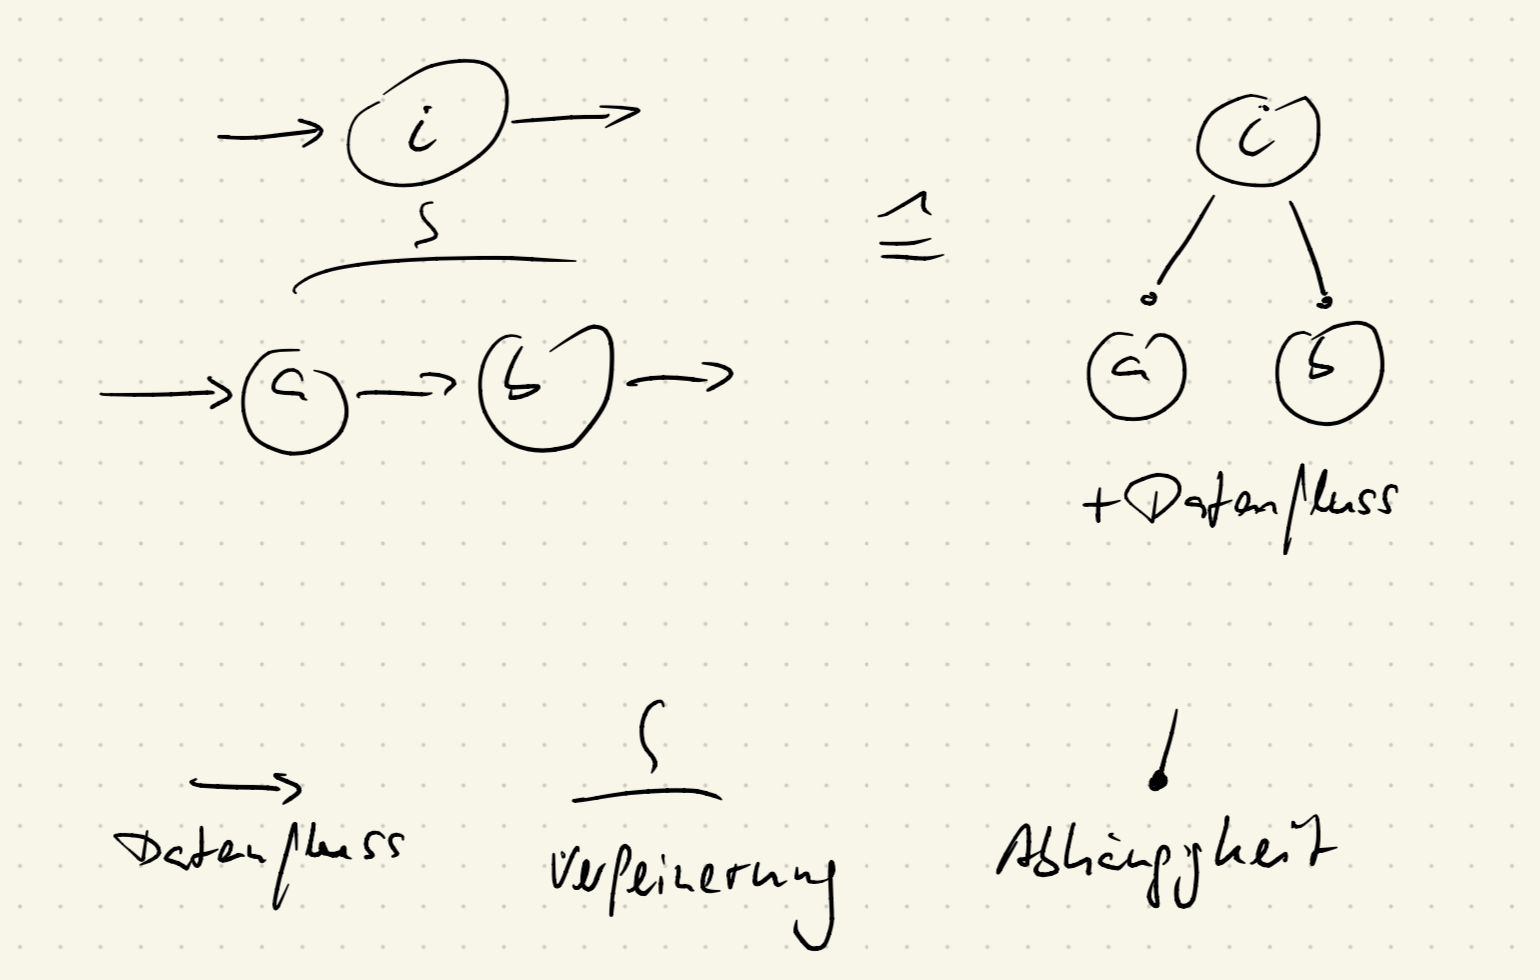 i
i
≙
a b
a b
+ Datenfluss
Datenfluss
Verfeinerung
Abhängigkeit